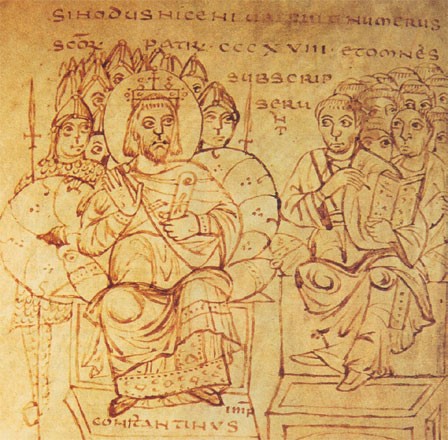 SINODUS NICENI UBI FUIT NUMERUS
SCOR PATR CCCXVIII ET OMNES
SUBSCRIP
SERU
NT
IMP
CONSTANTINVS